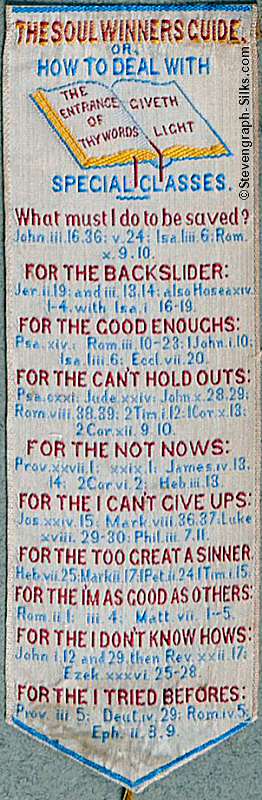 THE SOUL WINNERS GUIDE.
OR,
HOW TO DEAL WITH
THE
ENTRANCE
OF
THY WORDS
GIVETH
LIGHT
SPECIAL CLASSES.
What must I do to be saved?
John. iii. 16. 36; v. 24; Isa. liii. 6; Rom.
x. 9. 10.
FOR THE BACKSLIDER:
Jer. ii. 19; and iii. 13. 14; also Hosea xiv.
1-4. with Isa. i. 16-19.
FOR THE GOOD ENOUGHS:
Psa. xiv.; Rom. iii. 10-23; 1 John. i. 10;
Isa. liii. 6; Eccl. vii. 20.
FOR THE CAN'T HOLD OUTS:
Psa. cxxi; Jude. xxiv; John. x. 28. 29;
Rom. viii. 38. 39; 2 Tim. i. 12; 1 Cor. x. 13;
2 Cor. xii. 9. 10.
FOR THE NOT NOWS:
Prov. xxvii. 1; xxix. 1; James. iv. 13.
14; 2 Cor. vi. 2; Heb. iii. 13.
FOR THE I CAN'T GIVE UPS:
Jos. xxiv. 15; Mark. viii. 36. 37; Luke
xviii. 29-30; Phil. iii. 7. 11.
FOR THE TOO GREAT A SINNER
Heb. vii. 25; Mark ii. 17; 1 Pet. ii. 24; 1 Tim. i. 15.
FOR THE I'M AS GOOD AS OTHERS:
Rom. ii. 1; iii. 4; Matt. vii. 1-5.
FOR THE I DON'T KNOW HOWS:
John i. 12 and 29, then Rev. xxii. 17;
Ezek. xxxvi. 25-28.
FOR THE I TRIED BEFORES:
Prov. iii. 5; Deut. iv. 29; Rom. iv. 5;
Eph. ii. 8. 9.
© Stevengraph-Silks.com